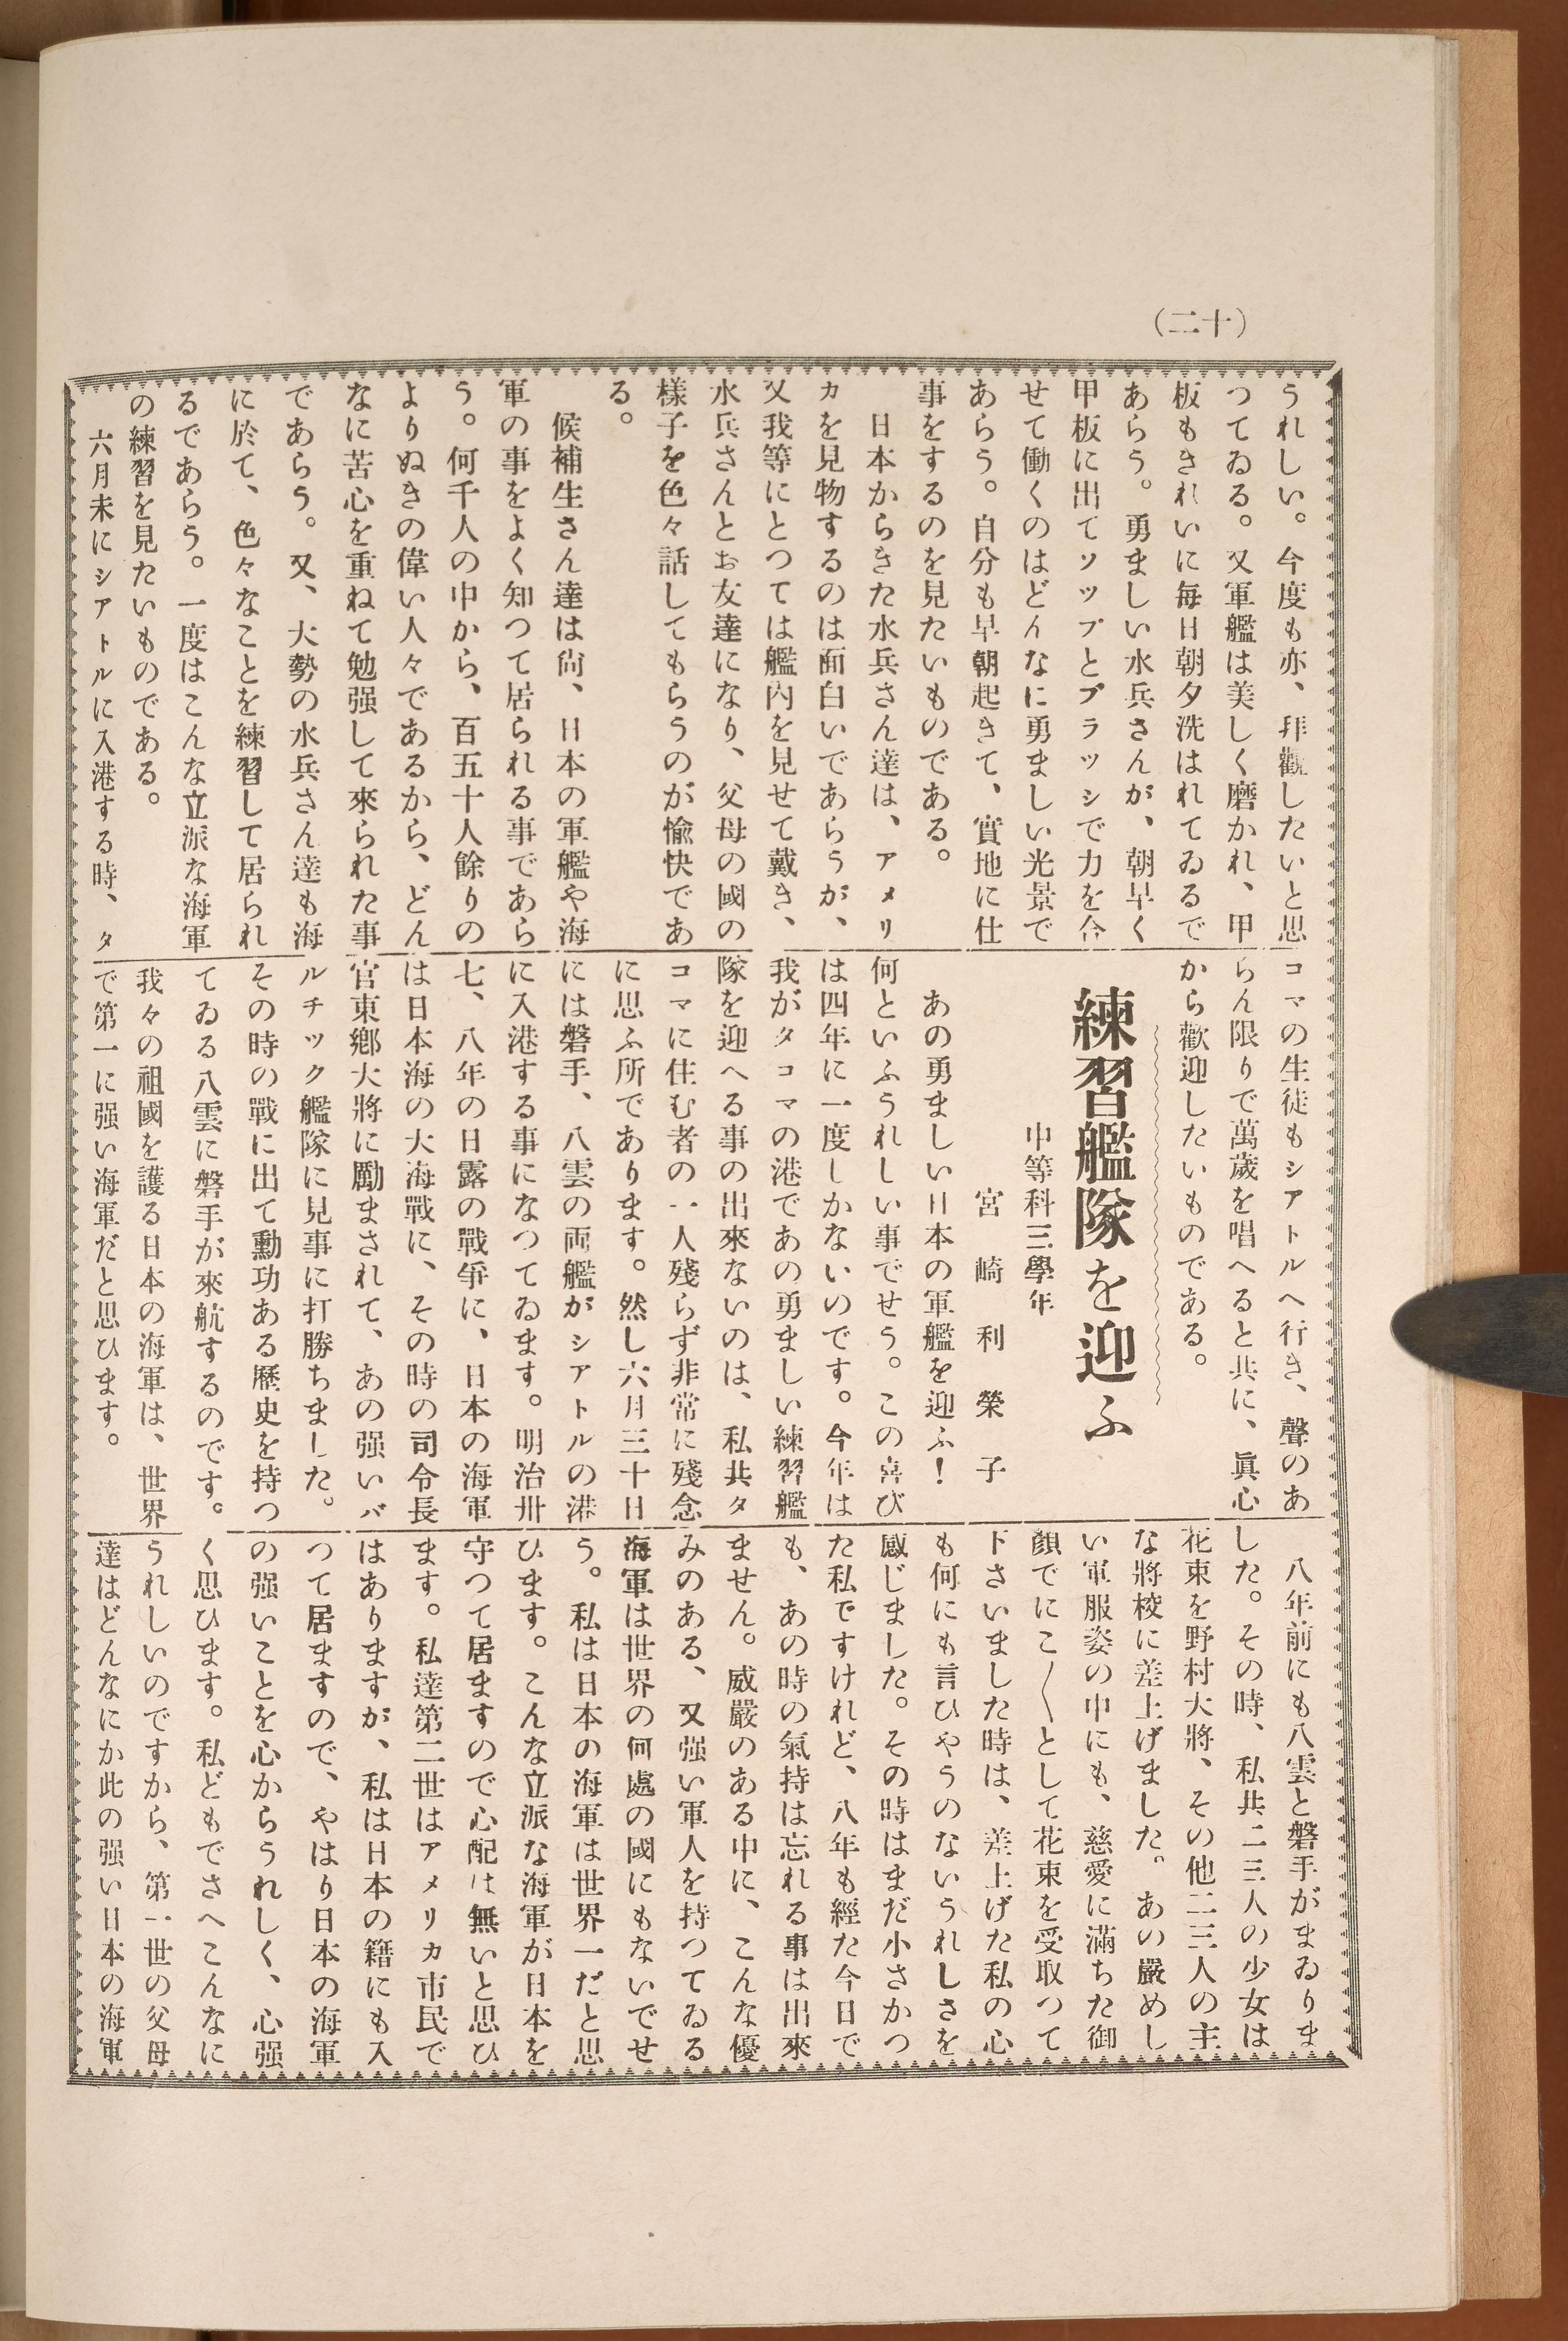 (二十)
うれしい。今度も亦、拜觀したいと思
つてゐる。又軍艦は美しく磨かれ、甲
板もきれいに毎日朝夕洗はれてゐるで
あらう。勇ましい水兵さんが、朝早く
甲板に出てソツプとブラッシで力を合
せて働くのはどんなに勇ましい光景で
あらう。自分も早朝起きて、實地に仕
事をするのを見たいものである。
日本からきた水兵さん達は、アメリ
カを見物するのは面白いであらうが、
又我等にとつては艦内を見せて戴き、
水兵さんとお友達になり、父母の國の
様子を色々話してもらうのが愉快であ
る。
候補生さん達は尙、日本の軍艦や海
軍の事をよく知つて居られる事であら
う。何千人の中から、百五十人餘りの
よりぬきの偉い人々であるから、どん
なに苦心を重ねて勉强して來られた事
であらう。又、大勢の水兵さん達も海
に於て、色々なことを練習して居られ
るであらう。一度はこんな立派な海軍
の練習を見たいものである。
六月末にシアトルに入港する時、タ
コマの生徒もシアトルへ行き、聲のあ
らん限りで萬歲を唱へると共に、眞心
から歡迎したいものである。
練習艦隊を迎ふ
中等科三學年
宮崎利榮子
あの勇ましい日本の軍艦を迎ふ!
何といふうれしい事でせう。この喜び
は四年に一度しかないのです。今年は
我がタコマの港であの勇ましい練習艦
隊を迎へる事の出來ないのは、私共タ
コマに住む者の一人殘らず非常に殘念
に思ふ所であります。然し六月三十日
には磐手、八雲の両艦がシアトルの港
に入港する事になつてゐます。明治卅
七、八年の日露の戰爭に、日本の海軍
は日本海の大海戰に、その時の司令長
官東鄕大將に勵まされて、あの强いバ
ルチック艦隊に見事に打勝ちました。
その時の戰に出て勳功ある歷史を持つ
てゐる八雲に磐手が來航するのです。
我々の祖國を護る日本の海軍は、世界
で第一に强い海軍だと思ひます。
八年前にも八雲と磐手がまゐりま
した。その時、私共二三人の少女は
花束を野村大將、その他二三人の主
な將校に差上げました。あの嚴めし
い軍服姿の中にも、慈愛に滿ちた御
顏でにこ〱として花束を受取つて
下さいました時は、差上げた私の心
も何にも言ひやうのないうれしさを
感じました。その時はまだ小さかつ
た私ですけれど、八年も經た今日で
も、あの時の氣持は忘れる事は出來
ません。威嚴のある中に、こんな優
みのある、又强い軍人を持つてゐる
海軍は世界の何處の國にもないでせ
う。私は日本の海軍は世界一だと思
ひます。こんな立派な海軍が日本を
守つて居ますので心配は無いと思ひ
ます。私達第二世はアメリカ市民で
はありますが、私は日本の籍にも入
つて居ますので、やはり日本の海軍
の强いことを心からうれしく、心强
く思ひます。私どもでさへこんなに
うれしいのですから、第一世の父母
達はどんなにか此の强い日本の海軍